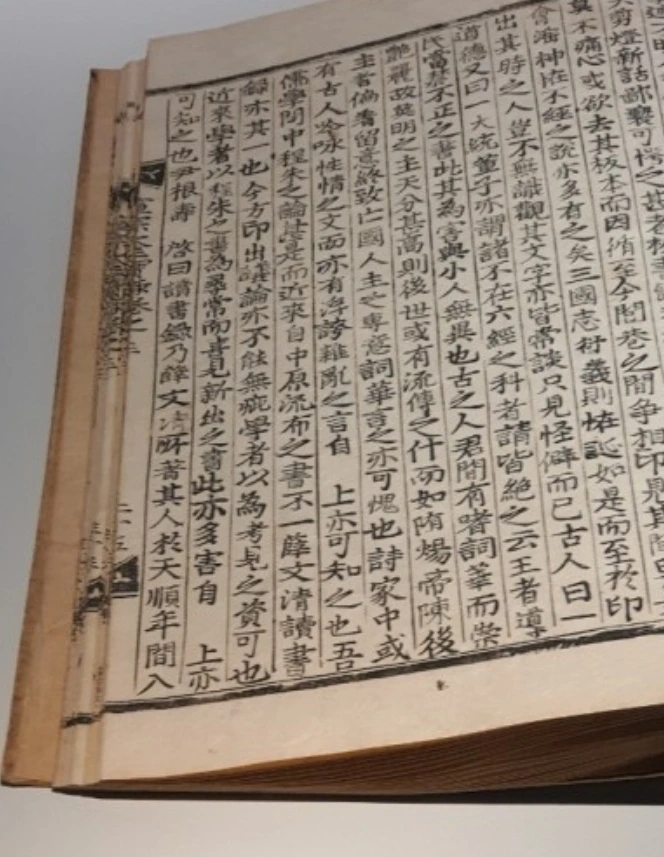 剪燈新話鄙褻可愕之甚者校書
莫不痛心或欲去其板本而因循至今閭巷之間爭相印見其間男
會淫神怪不經之說亦多有之矣三國志衍義則怪誕如是而至於印
出其時之人豈不無識觀其文字亦皆常談只見怪僻而已古人曰一
道德又曰一大統董子亦謂諸不在六經之科者請皆絶之云王者導
民當禁不正之書此其為害與小人無異也古之人君間有嗜詞華而崇
艶麗故英明之主天分甚高則後世或有流傳之什而如隋煬帝陳後
主者偏着留意終致亡國人主之專意詞華言之亦可愧也詩家中或
有古人吟咏性情之文而亦有浮誇雜亂之言自 上亦可知之也吾
儒學問中程朱之論甚是而近來自中原流布之書不一薛文清讀書
錄亦其一也今方印出議論亦不能無疵學者以為考見之資可也
近來學者以程朱之書為尋常而喜見新出之書此亦多害自 上亦
可知之也尹根壽 啓曰讀書錄乃薛文清所著其人於天順年間入